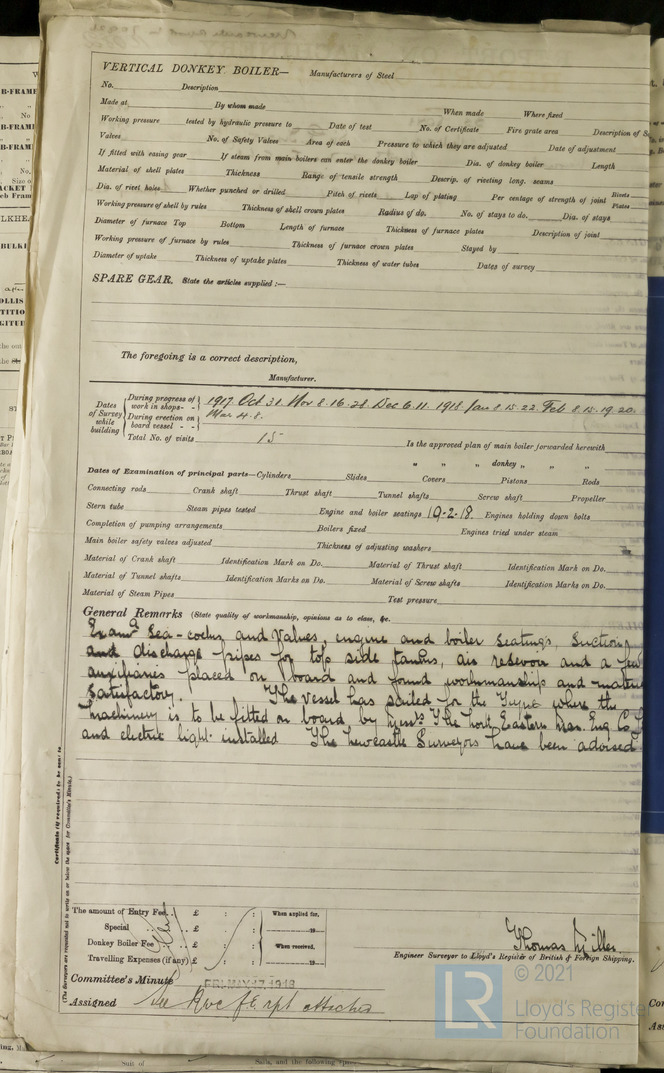 VERTICAL DONKEY BOILER— Manufacturers of Steel
No. Description
Made at By whom made When made Where fixed
Working pressure tested by hydraulic pressure to Date of test No. of Certificate Fire grate area Description of
Valves No. of Safety Valves Area of each Pressure to which they are adjusted Date of adjustment
If fitted with easing gear If steam from main boilers can enter the donkey boiler Dia. of donkey boiler Length
Material of shell plates Thickness Range of tensile strength Descrip. of riveting long. seams
Dia. of rivet holes Whether punched or drilled Pitch of rivets Lap of plating Per centage of strength of joint Rivets Plates
Working pressure of shell by rules Thickness of shell crown plates Radius of do. No. of stays to do. Dia. of stays
Diameter of furnace Top Bottom Length of furnace Thickness of furnace plates Description of joint
Working pressure of furnace by rules Thickness of furnace crown plates Stayed by
Diameter of uptake Thickness of uptake plates Thickness of water tubes Dates of survey
SPARE GEAR. State the articles supplied:—
The foregoing is a correct description,
Manufacturer.
Dates of Survey while building
During progress of work in shops - - 1917 Oct 31. Nov 8. 16. 28. Dec 6. 11. 1918 Jan 8 15. 22. Feb 8. 15. 19. 20.
During erection on board vessel - - Mar 4. 8.
Total No. of visits 15 Is the approved plan of main boiler forwarded herewith
" " " donkey " " "
Dates of Examination of principal parts—Cylinders Slides Covers Pistons Rods
Connecting rods Crank shaft Thrust shaft Tunnel shafts Screw shaft Propeller
Stern tube Steam pipes tested Engine and boiler seatings 19-2-18 Engines holding down bolts
Completion of pumping arrangements Boilers fixed Engines tried under steam
Main boiler safety valves adjusted Thickness of adjusting washers
Material of Crank shaft Identification Mark on Do. Material of Thrust shaft Identification Mark on Do.
Material of Tunnel shafts Identification Marks on Do. Material of Screw shafts Identification Marks on Do.
Material of Steam Pipes Test pressure
General Remarks (State quality of workmanship, opinions as to class, &c.
Examd Sea-cocks, and Valves, engine and boiler seatings, Suction
and discharge pipes for top side tanks, air resevoir and a few
auxiliaries placed on board and found workmanship and
satisfactory. The vessel has sailed for the Tyne where the
machinery is to be fitted on board by Messrs The North Eastern Mar. Eng Co
and electric light installed The Newcastle Surveyors have been advised
Certificate (if required) to be sent to
(The Surveyors are requested not to write on or below the space for Committee's Minute.)
The amount of Entry Fee £ : : When applied for,
Special £ : : 19
Donkey Boiler Fee £ : : When received,
Travelling Expenses (if any) £ : : 19
Thomas Miller
Engineer Surveyor to Lloyd's Register of British & Foreign Shipping.
Committee's Minute FRI. MAY 17 1918
Assigned See Nwc F.E. rpt attached
LR
© 2021
Lloyd's Register
Foundation